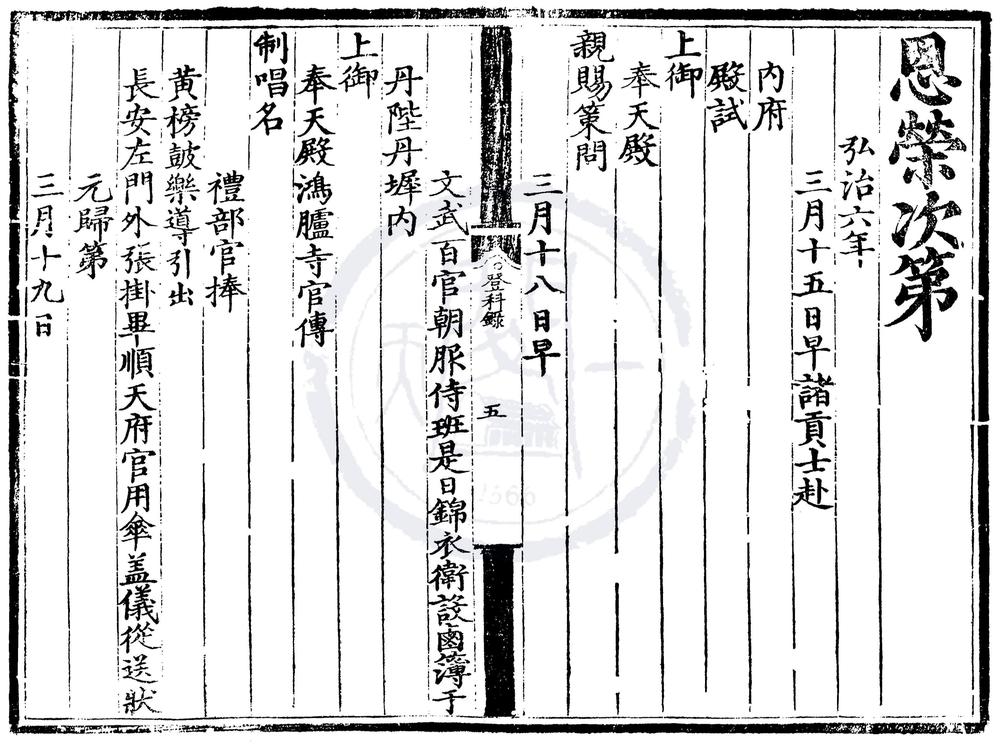 恩榮次第
弘治六年
三月十五日早諸貢士赴
內府
殿試
上御
奉天殿
親賜策問
三月十八日早
登科錄
五
文武百官朝服侍班是日錦衣衛設鹵簿于
丹陛丹墀內
上御
奉天殿鴻臚寺官傳
制唱名
禮部官捧
黃榜鼓樂導引出
長安左門外張掛畢順天府官用傘盖儀從送狀
元歸第
三月十九日
天一
1566